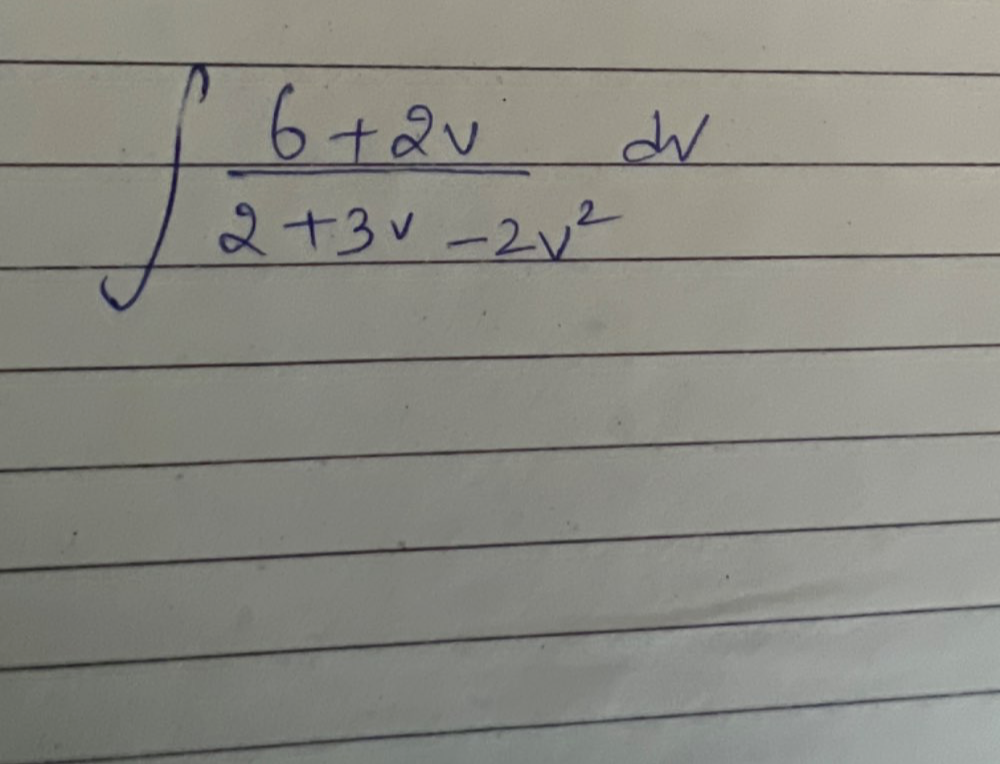 ∫ 6 + 2v / 2 + 3v - 2v² dv